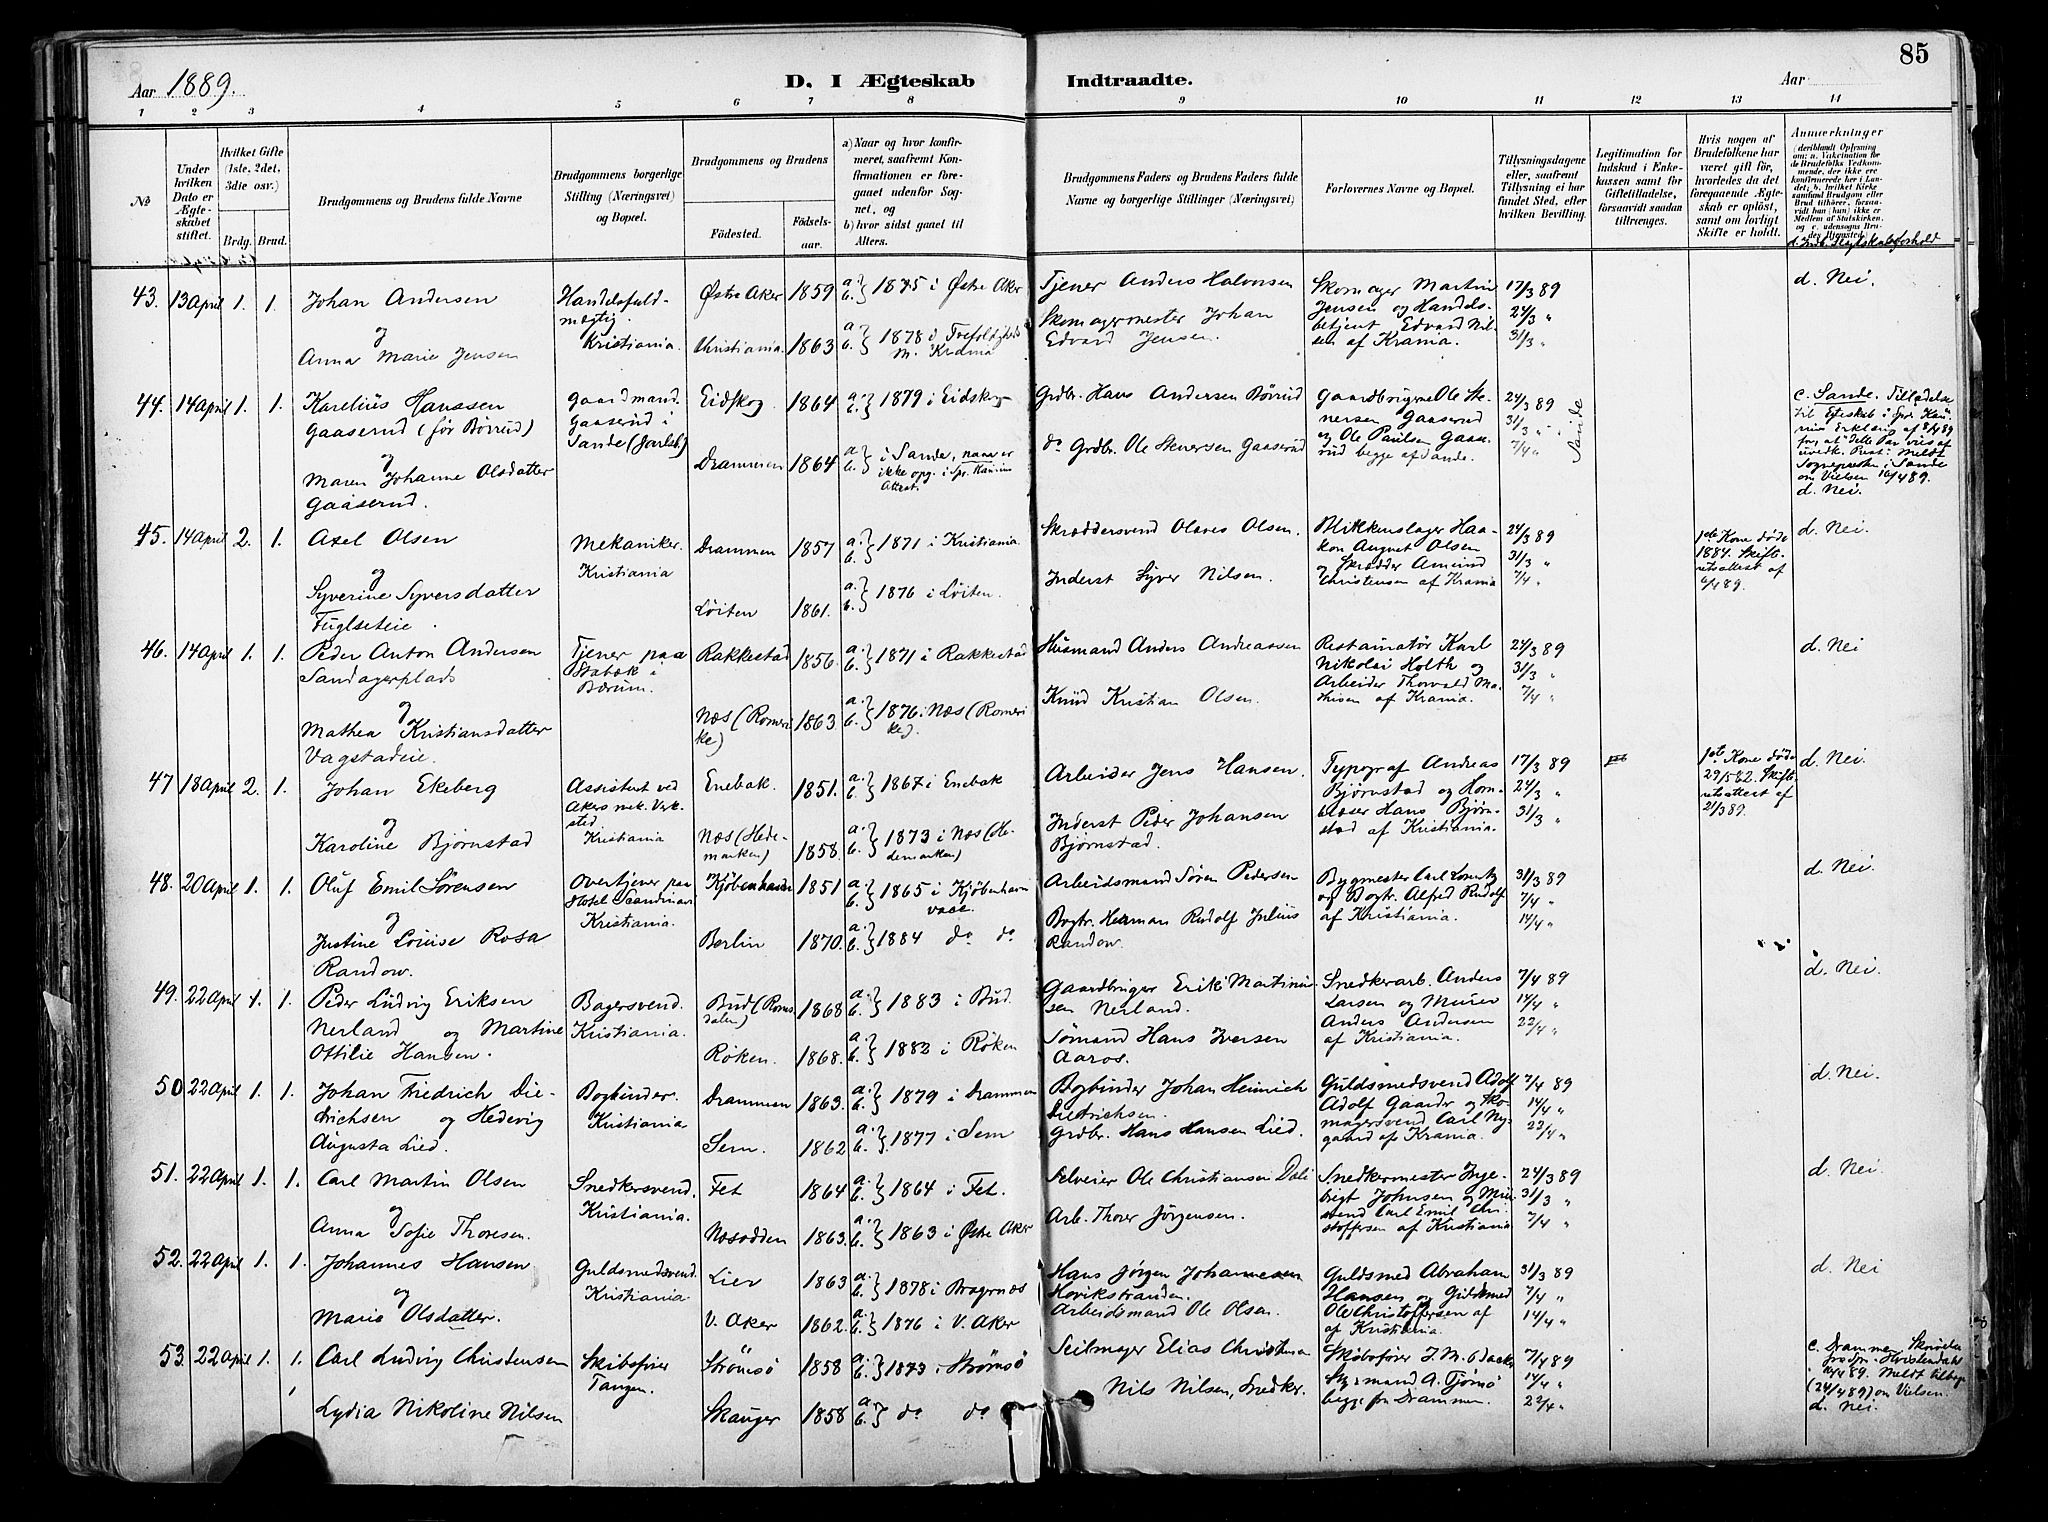 85
Aar 1889.
D. I Ægteskab Indtraadte.
Aar
1 2 3 4 5 6 7 8 9 10 11 12 13 14
No
Under hvilken Dato er Ægteskabet stiftet.
Hvilket Gifte (1ste, 2det, 3die osv.)
Brdg. Brud.
Brudgommens og Brudens fulde Navne
Brudgommens borgerlige Stilling (Næringsvei) og Bopæl.
Brudgommens og Brudens
Födested.
Födselsaar.
a) Naar og hvor konfirmeret, saafremt Konfirmationen er foregaaet udenfor Sognet, og
b) hvor sidst gaaet til Alters.
Brudgommens Faders og Brudens Faders fulde Navne og borgerlige Stillinger (Næringsvei)
Forlovernes Navne og Bopæl.
Tillysningsdagene eller, saafremt Tillysning ei har fundet Sted, efter hvilken Bevilling.
Legitimation for Indskud i Enkekassen samt for Giftetilladelse, forsaavidt saadan tiltrænges.
Hvis nogen af Brudefolkene har været gift, hvorledes da det foregaaende Ægteskab er oplöst, samt om lovligt Skifte er holdt.
Anmærkninger (deriblandt Oplysning om: a. Vakcination for de Brudefolks Vedkommende, der ikke ere konfirmerede her i Landet; b. hvilket Kirkesamfund Brudgom eller Brud tilhörer, forsaavidt han (hun) ikke er Medlem af Statskirken, og c. udensogns Brudes Hjemsted.)
43. 13 April 1. 1. Johan Andersen
og
Anna Marie Jensen
Handelsfuldmægtig. Kristiania.
Østre Aker 1859 a. b. } 1875 i Østre Aker
Christiania. 1863 a. b. } 1878 i Trefoldighedsm. Krania
Tjener Anders Halvorsen
Skomagermester Johan Edvard Jensen.
Skomager Martin Jensen og Handelsbetjent Edvard Nilsen af Krania.
17/3 89
24/3 "
31/3 "
d. Nei.
44. 14 April 1. 1. Karelius Hanssen Gaaserud (før Børrud)
og
Maren Johanne Olsdatter Gaaserud.
Gaardmand. Gaaserud i Sande (Jarlsb.)
Eidskog 1864 a. b. } 1879 i Eidskog
Drammen 1864 a. b. } i Sande, naar er ikke opg. i Spr. Attest.
Grdbr. Hans Andersen Børrud
do Grdbr. Ole Stenersen Gaaserud
Gaardbruger Ole Stenersen Gaaserud og Ole Paulsen Gaaserud begge af Sande.
24/3 89
31/3 "
7/4 "
Sande
c. Sande. Tilladelse til Ægteskab i Spr. Erklæring af 8/4 89 for, at dette Par vies af uvedk. Præst. Meldt Sognepresten i Sande om Vielsen 16/4 89.
d. Nei.
45. 14 April 2. 1. Axel Olsen
og
Syverine Syversdatter Fuglseteie.
Mekaniker. Kristiania
Drammen 1857 a. b. } 1871 i Kristiania
Löiten 1861. a. b. } 1876 i Löiten.
Skræddersvend Olaves Olsen.
Inderst Syver Nilsen.
Blikkenslager Haakon August Olsen og Skrædder Amund Christensen af Krania
24/3 89
31/3 "
7/4 "
1ste Kone døde 1884. Skifteretsattest af 6/4 89.
d. Nei.
46. 14 April 1. 1. Peder Anton Andersen Sandagerplads
og
Mathea Kristiansdatter Vagstadeie.
Tjener paa Stabæk i Bærum.
Rakkestad 1856. a. b. } 1871 i Rakkestad
Næs (Romerike) 1863 a. b. } 1876 i Næs (Romerike).
Husmand Anders Andreassen
Knud Kristian Olsen.
Restauratør Karl Nikolai Holth og Arbeider Thorvald Mathisen af Krania.
24/3 89
31/3 "
7/4 "
d. Nei
47 18 April 2. 1. Johan Ekeberg
og
Karoline Bjørnstad
Assistent ved Akers mek. Verksted Kristiania
Enebak. 1851. a. b. } 1867 i Enebak
Næs (Hedemarken) 1858. a. b. } 1873 i Næs (Hedemarken)
Arbeider Jens Hansen.
Inderst Peder Johansen Bjørnstad.
Typograf Andreas Bjørnstad og Hornblaser Hans Bjørnstad af Kristiania.
17/3 89
24/3 "
31/3 "
1ste Kone døde 29/5 82. Skifteretsattest af 21/3 89.
d. Nei.
48. 20 April 1. 1. Oluf Emil Sørensen
og
Justine Louise Rosa Randow.
Overtjener paa Hotel Scandinav. Kristiania.
Kjøbenhavn 1851 a. b. } 1865 i Kjøbenhavn
Berlin 1870. a. b. } 1884 do do
Arbeidsmand Søren Pedersen
Bogtr. Herman Rudolf Julius Randow.
Bygmester Carl Lorentz og Bogtr. Alfred Rudolf af Kristiania.
31/3 89
7/4 "
14/4 "
d. Nei.
49. 22 April 1. 1. Peder Ludvig Eriksen Nerland og Martine Ottilie Hansen.
Bagersvend. Kristiania.
Bud (Romsdalen) 1868 a. b. } 1883 i Bud.
Røken. 1868. a. b. } 1882 i Røken
Gaardbruger Erik Martinussen Nerland.
Sømand Hans Iversen Aaros.
Snedkerarb. Anders Larsen og Murer Anders Andersen af Kristiania.
7/4 89
14/4 "
22/4 "
d. Nei.
50 22 April 1. 1. Johan Friedrich Diedrichsen og Hedevig Augusta Lied.
Bogbinder. Kristiania
Drammen 1863. a. b. } 1879 i Drammen
Sem. 1862 a. b. } 1877 i Sem
Bogbinder Johan Heinrich Diedrichsen.
Grdbr. Hans Hansen Lied.
Guldsmedsvend Adolf Adolf Gaarder og Skomagersvend Carl Nygaard af Krania.
7/4 89
14/4 "
22/4 "
d. Nei.
51. 22 April 1. 1. Carl Martin Olsen
og
Anna Sofie Thoresen.
Snedkersvend. Kristiania.
Fet 1864 a. b. } 1864 i Fet.
Næsodden 1863. a. b. } 1863 i Østre Aker
Selveier Ole Christiansen Dali
Arb. Thover Jørgensen.
Snedkermester Ingebrigt Johnsen og Mursvend Carl Emil Christoffersen af Kristiania
24/3 89
31/3 "
7/4 "
d. Nei.
52. 22 April 1. 1. Johannes Hansen
og
Marie Olsdatter.
Guldsmedsvend. Kristiania.
Lier 1863 a. b. } 1878 i Bragernæs
V. Aker 1862. a. b. } 1876 i V. Aker
Hans Jørgen Johannesen Hovikstranden.
Arbeidsmand Ole Olsen.
Guldsmed Abraham Hansen og Guldsmed Ole Christoffersen af af Kristiania.
31/3 89
7/4 "
14/4 "
d. Nei
53. 22 April 1. 1. Carl Ludvig Christensen
Lydia Nikoline Nilsen
Skibsfører Tangen.
Strömsö 1858 a. b. } 1873 i Strömsö
Skauger 1858 a. b. } do do
Seilmager Elias
Nils Nilsen, Snedker.
Skibsfører J. M.
A. Tjømø begge fra Drammen.
7/4 89
14/4 "
22/4 "
c. Drammen.
Meldt
(24/4 89) om Vielsen.
d. Nei.